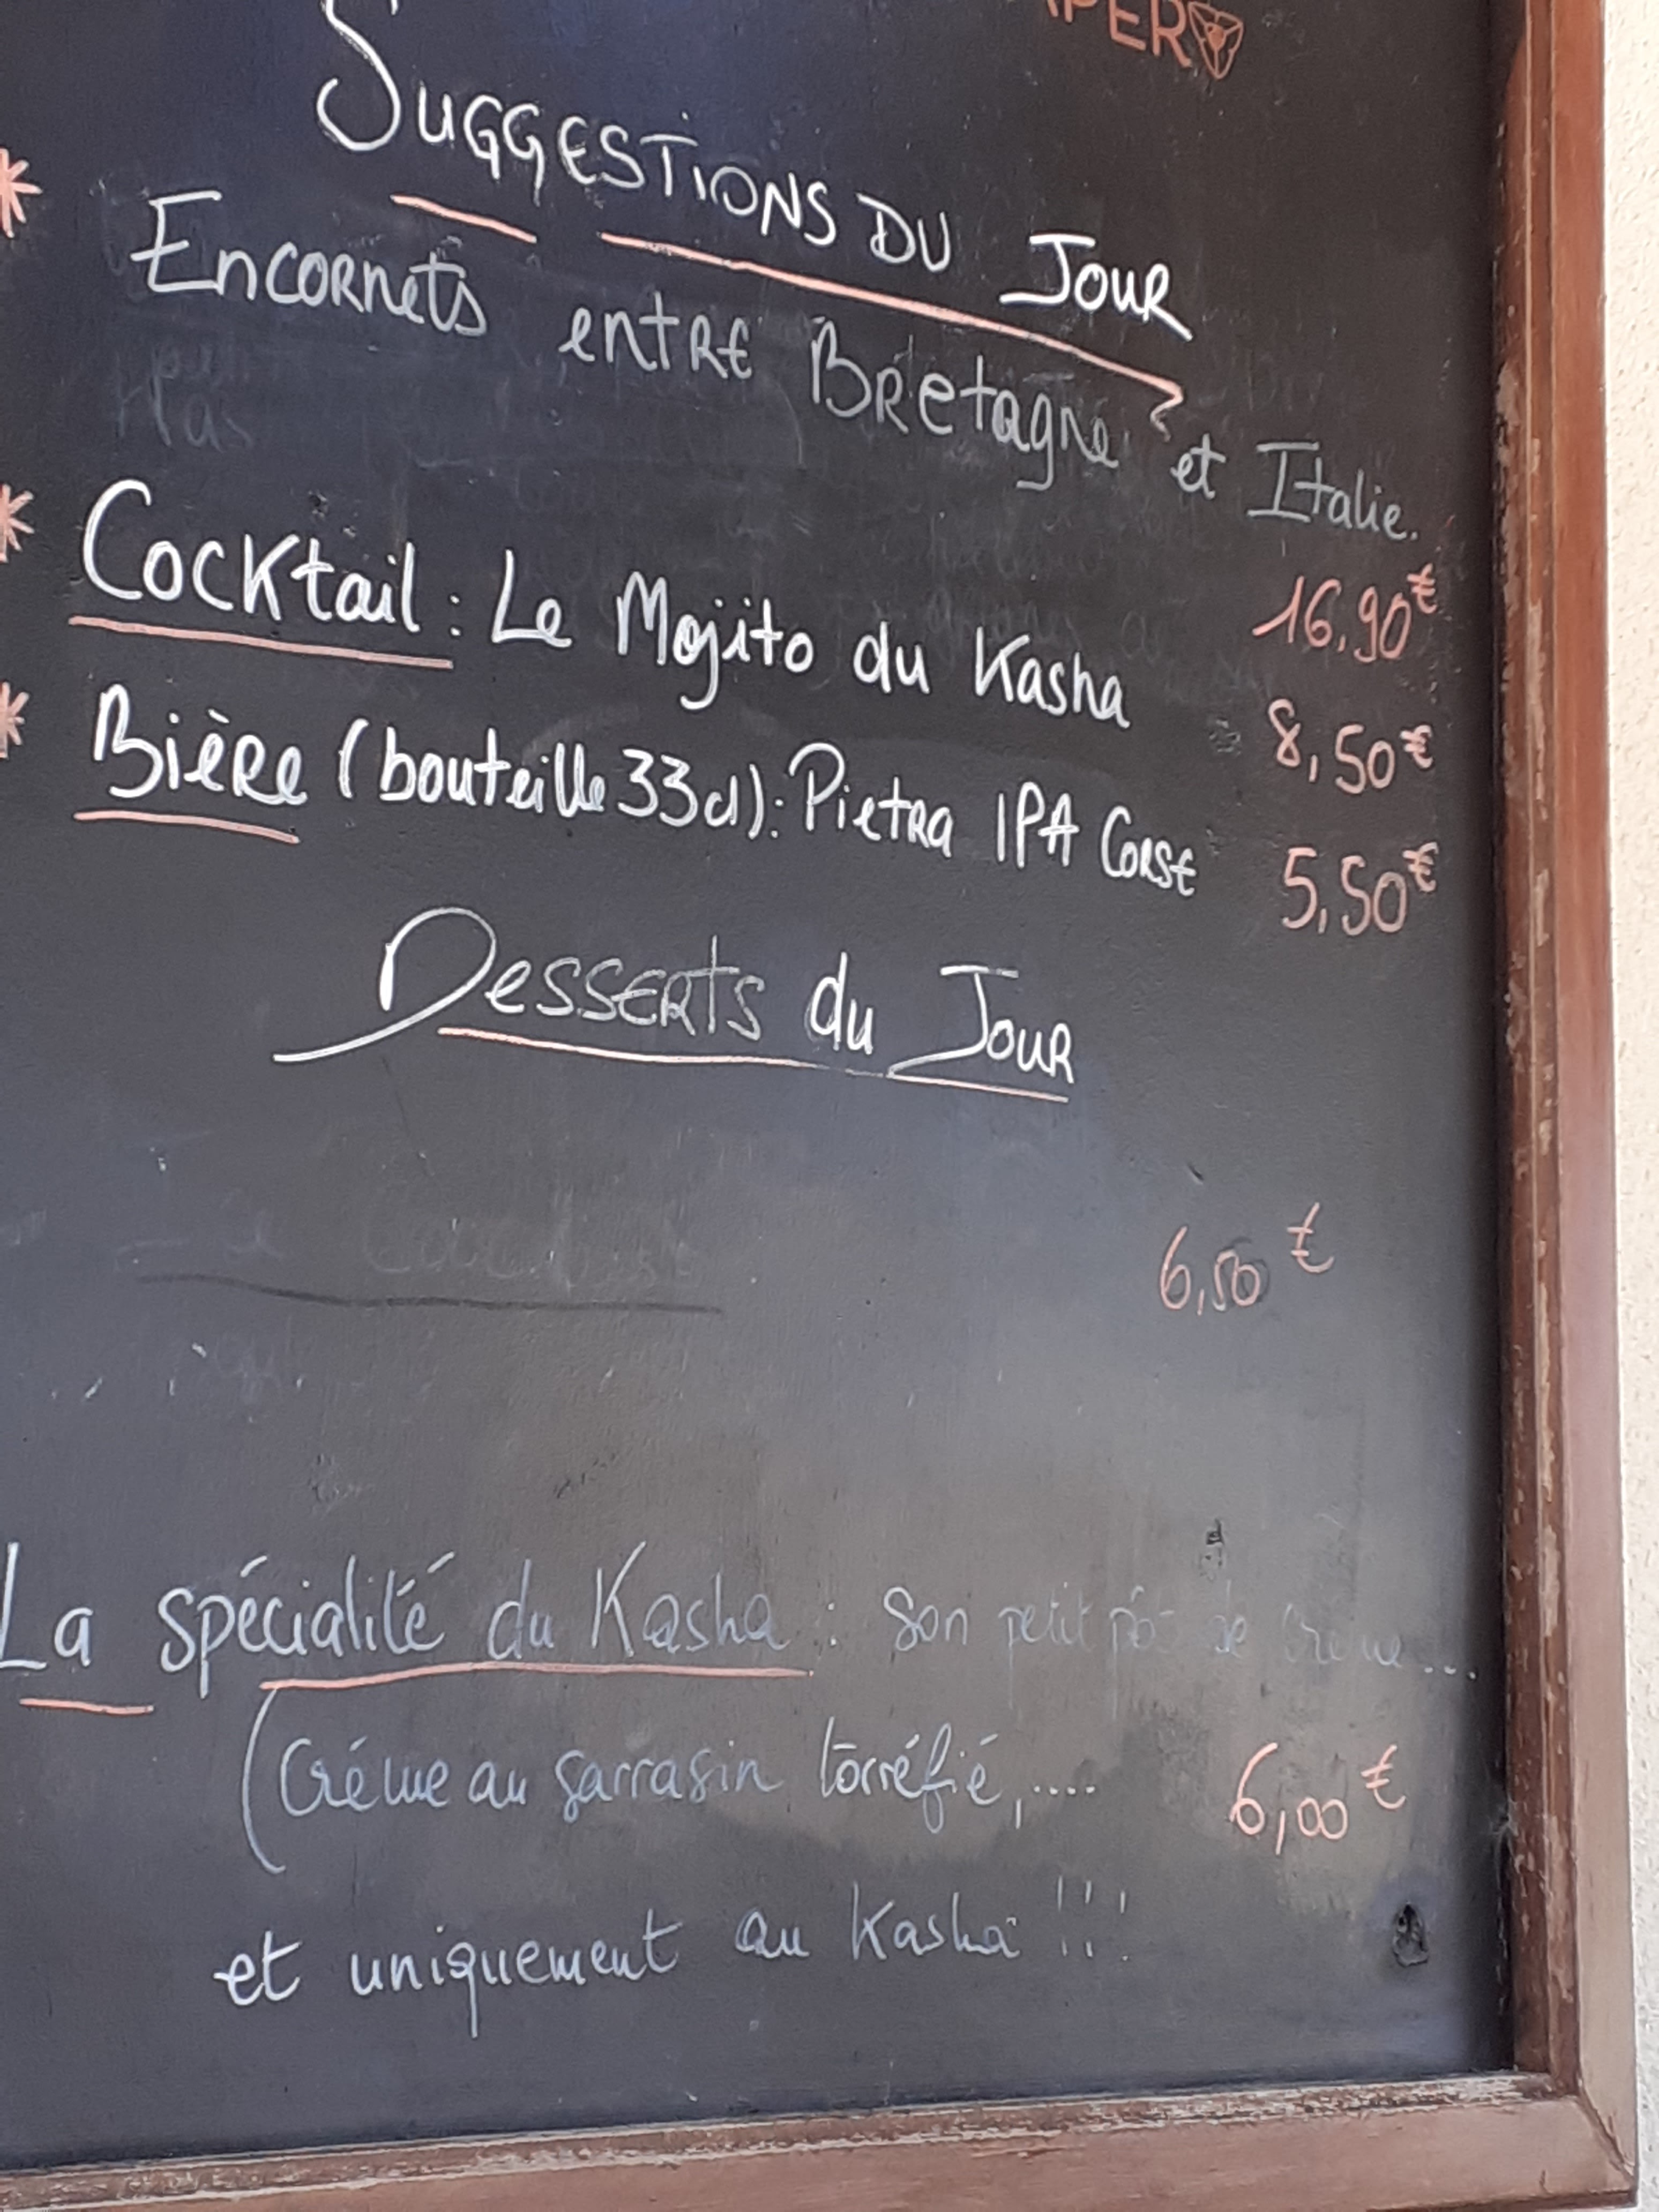 APERO
SUGGESTIONS DU JOUR
* Encornets entre Bretagne et Italie.
16,90€
* Cocktail : Le Mojito du Kasha 8,50€
* Bière (bouteille 33cl) : Pietra IPA Corse 5,50€
Desserts du Jour
6,50€
La spécialité du Kasha : son petit pôt de crème...
(Créme au sarrasin torréfié,.... 6,00€
et uniquement au Kasha !!!